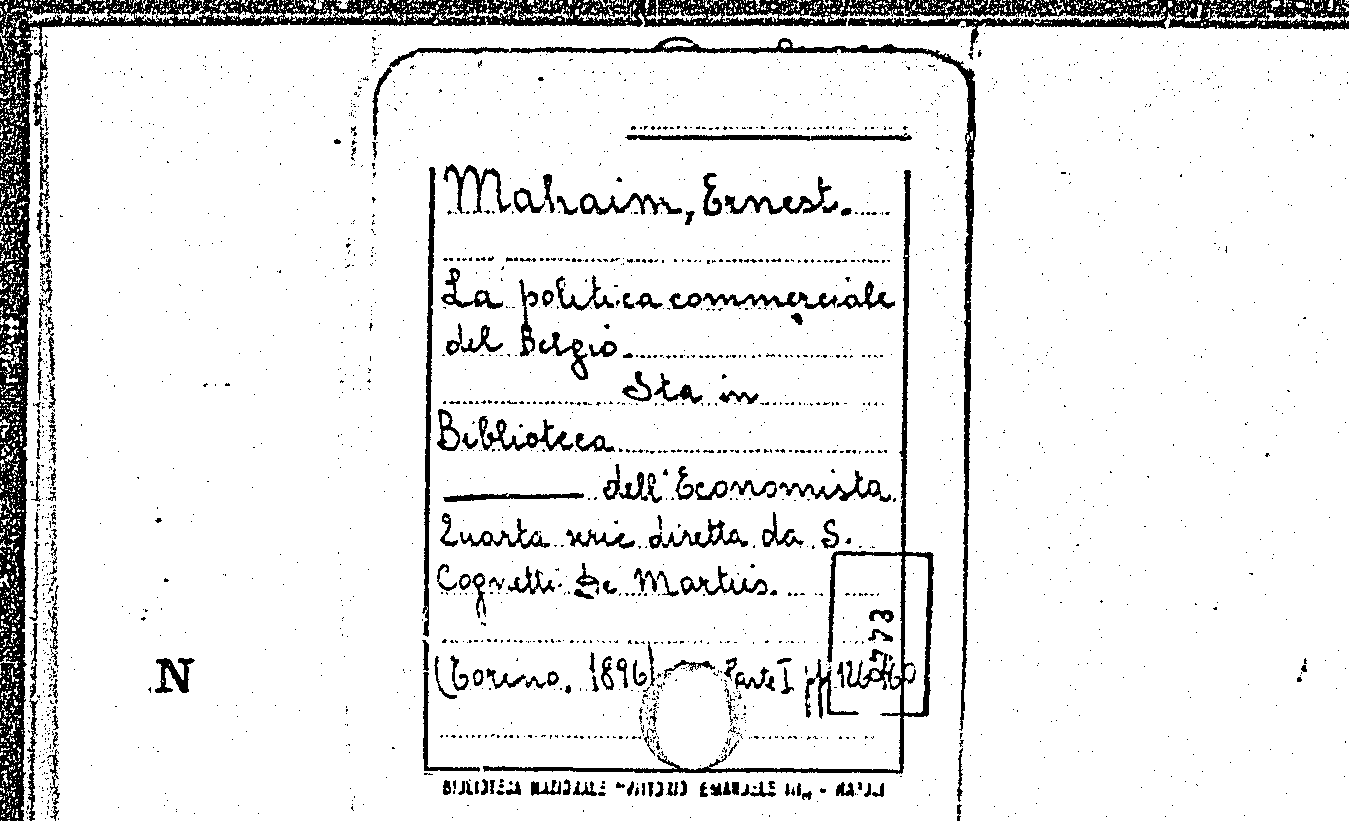 Mahaim, Ernest.
La politica commerciale
del Belgio.
Sta in
Biblioteca
dell'Economista
Quarta serie diretta da S.
Cognetti De Martiis.
(Torino, 1896) Parte I pp
773
N
BIBLIOTECA NAZIONALE "VITTORIO EMANUELE III" - NAPOLI